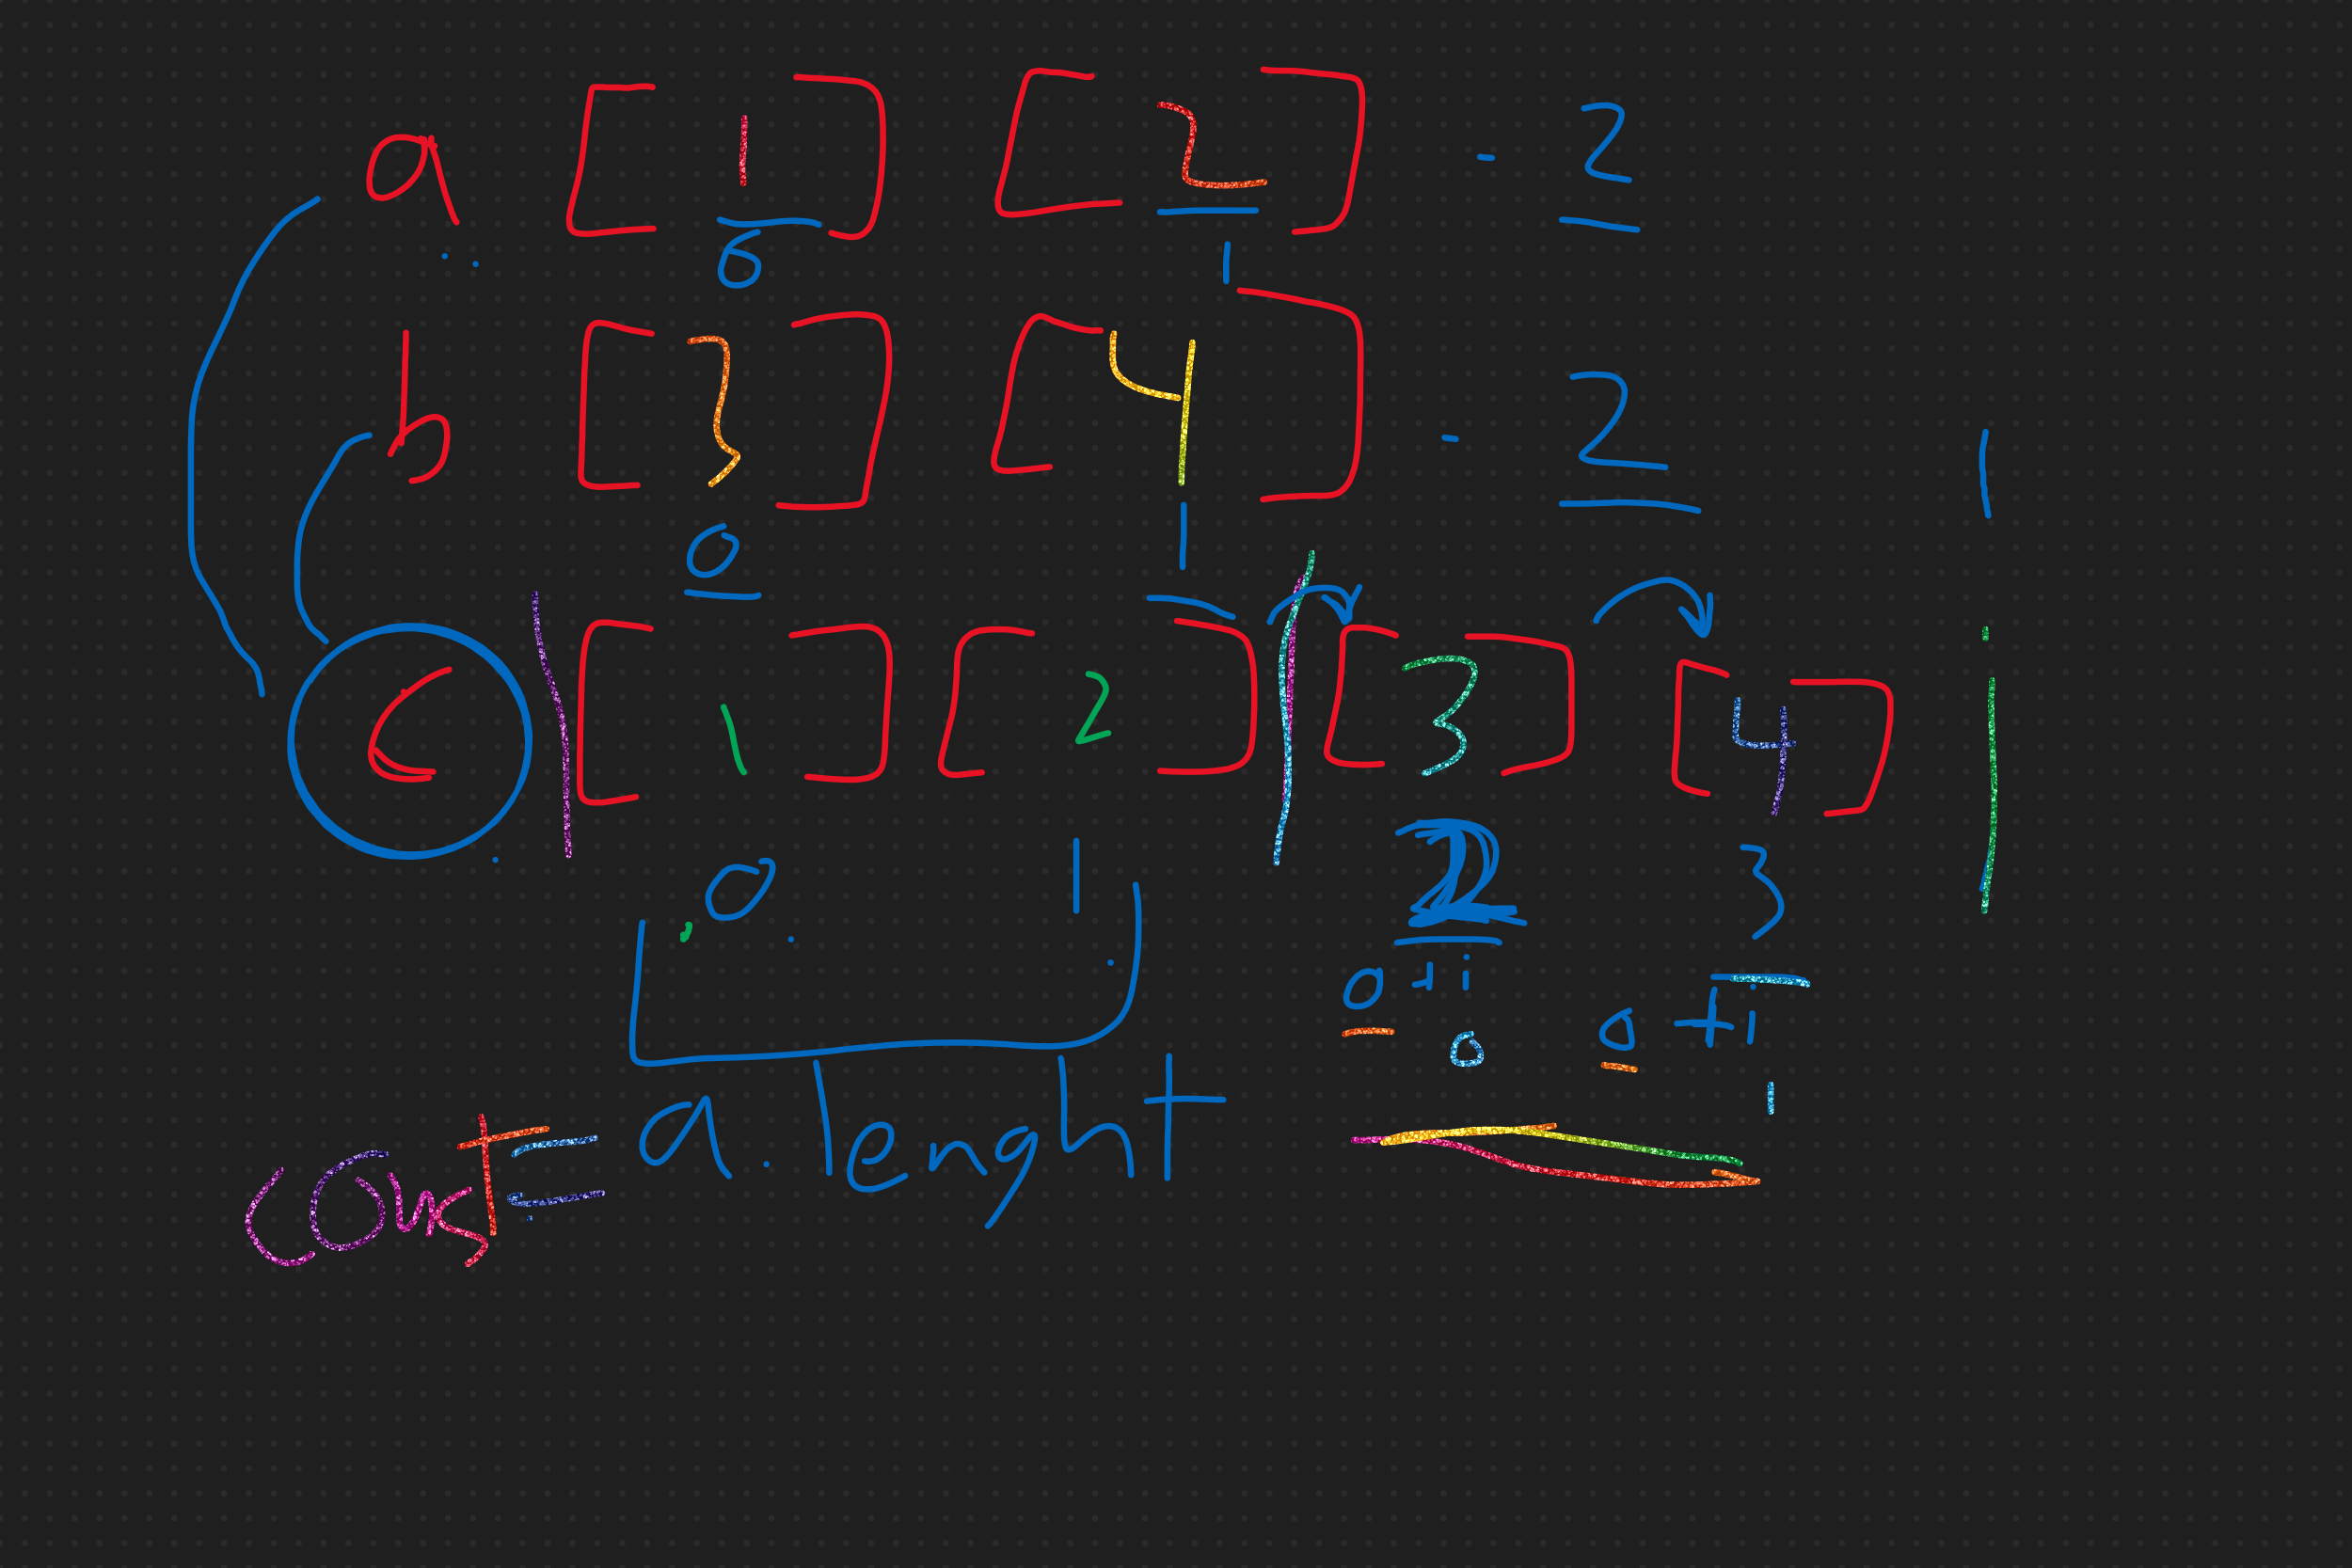 a [ 1 ] [ 2 ] - 2
0 1
b [ 3 ] [ 4 ] - 2
0 1
c [ 1 ] [ 2 ] [ 3 ] [ 4 ]
0 1 2 3
a + i a + i
0 1
const = a.lenght